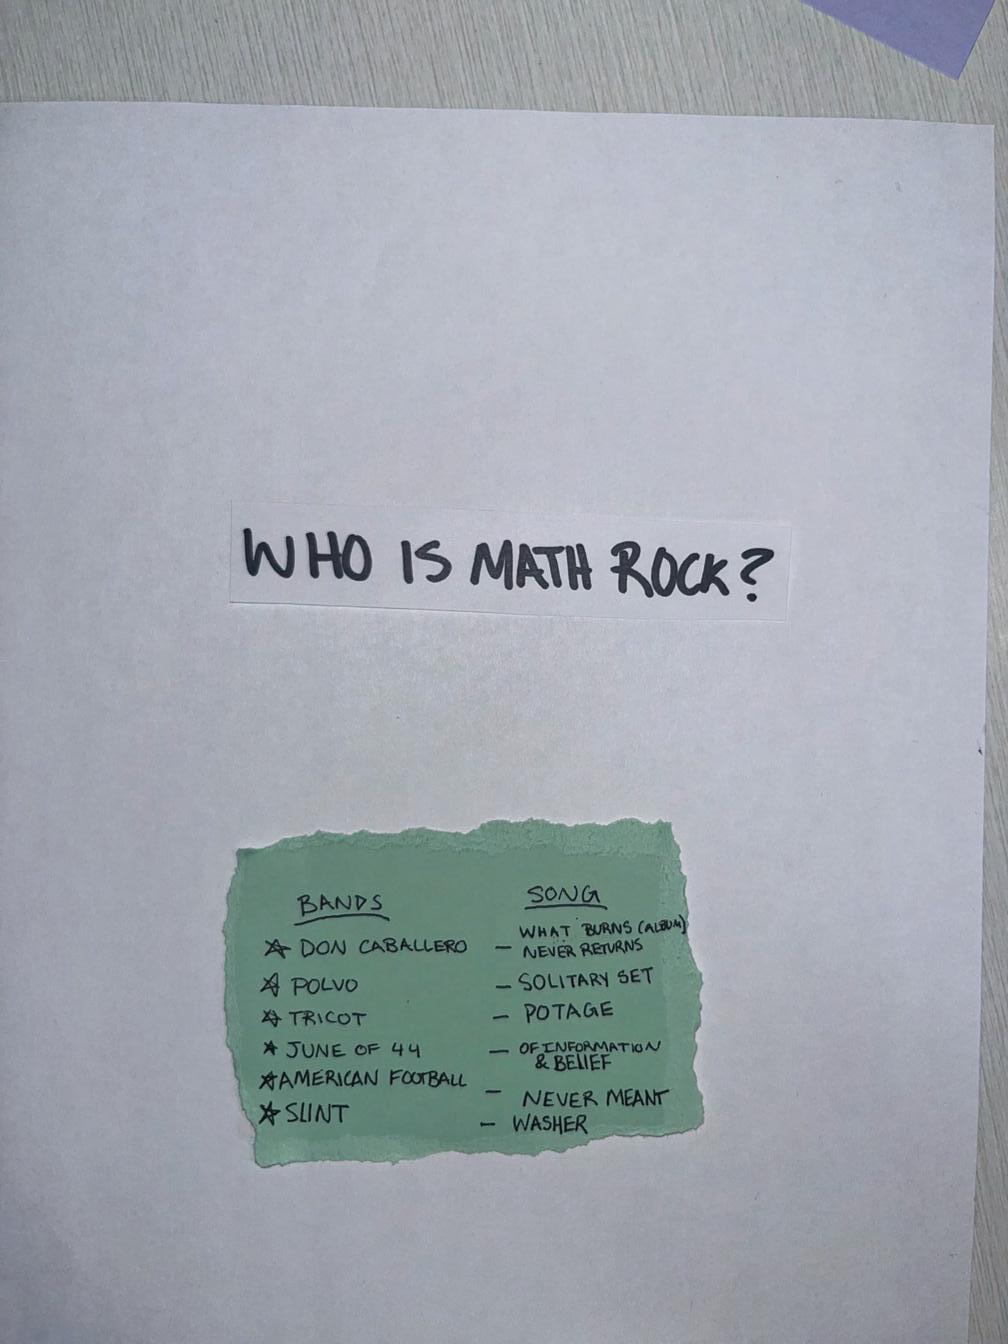 WHO IS MATH ROCK?
BANDS
☆ DON CABALLERO
☆ POLVO
☆ TRICOT
☆ JUNE OF 44
☆ AMERICAN FOOTBALL
☆ SLINT
SONG
— WHAT BURNS (ALBUM)
NEVER RETURNS
— SOLITARY SET
— POTAGE
— OF INFORMATION
& BELIEF
— NEVER MEANT
— WASHER